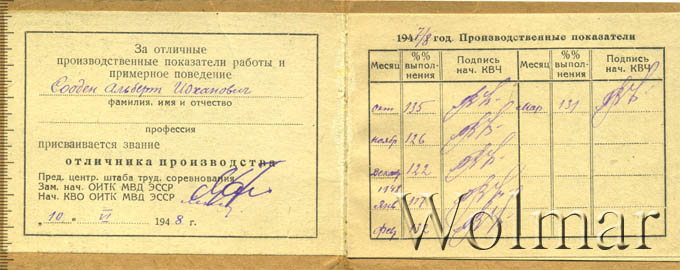 За отличные
производственные показатели работы и
примерное поведение
Сооден Альберт Иоханович
фамилия, имя и отчество
профессия
присваивается звание
отличника производства
Пред. центр. штаба труд. соревнования
Зам. нач. ОИТК МВД ЭССР
Нач. КВО ОИТК МВД ЭССР
10 VI 1948 г.
1947/8 год. Производственные показатели
Месяц %% выпол-нения Подпись нач. КВЧ Месяц %% выпол-нения Подпись нач. КВЧ
окт 135 мар 131
ноябр 126
декабр 122
1948
янв
фев 132
Wolmar